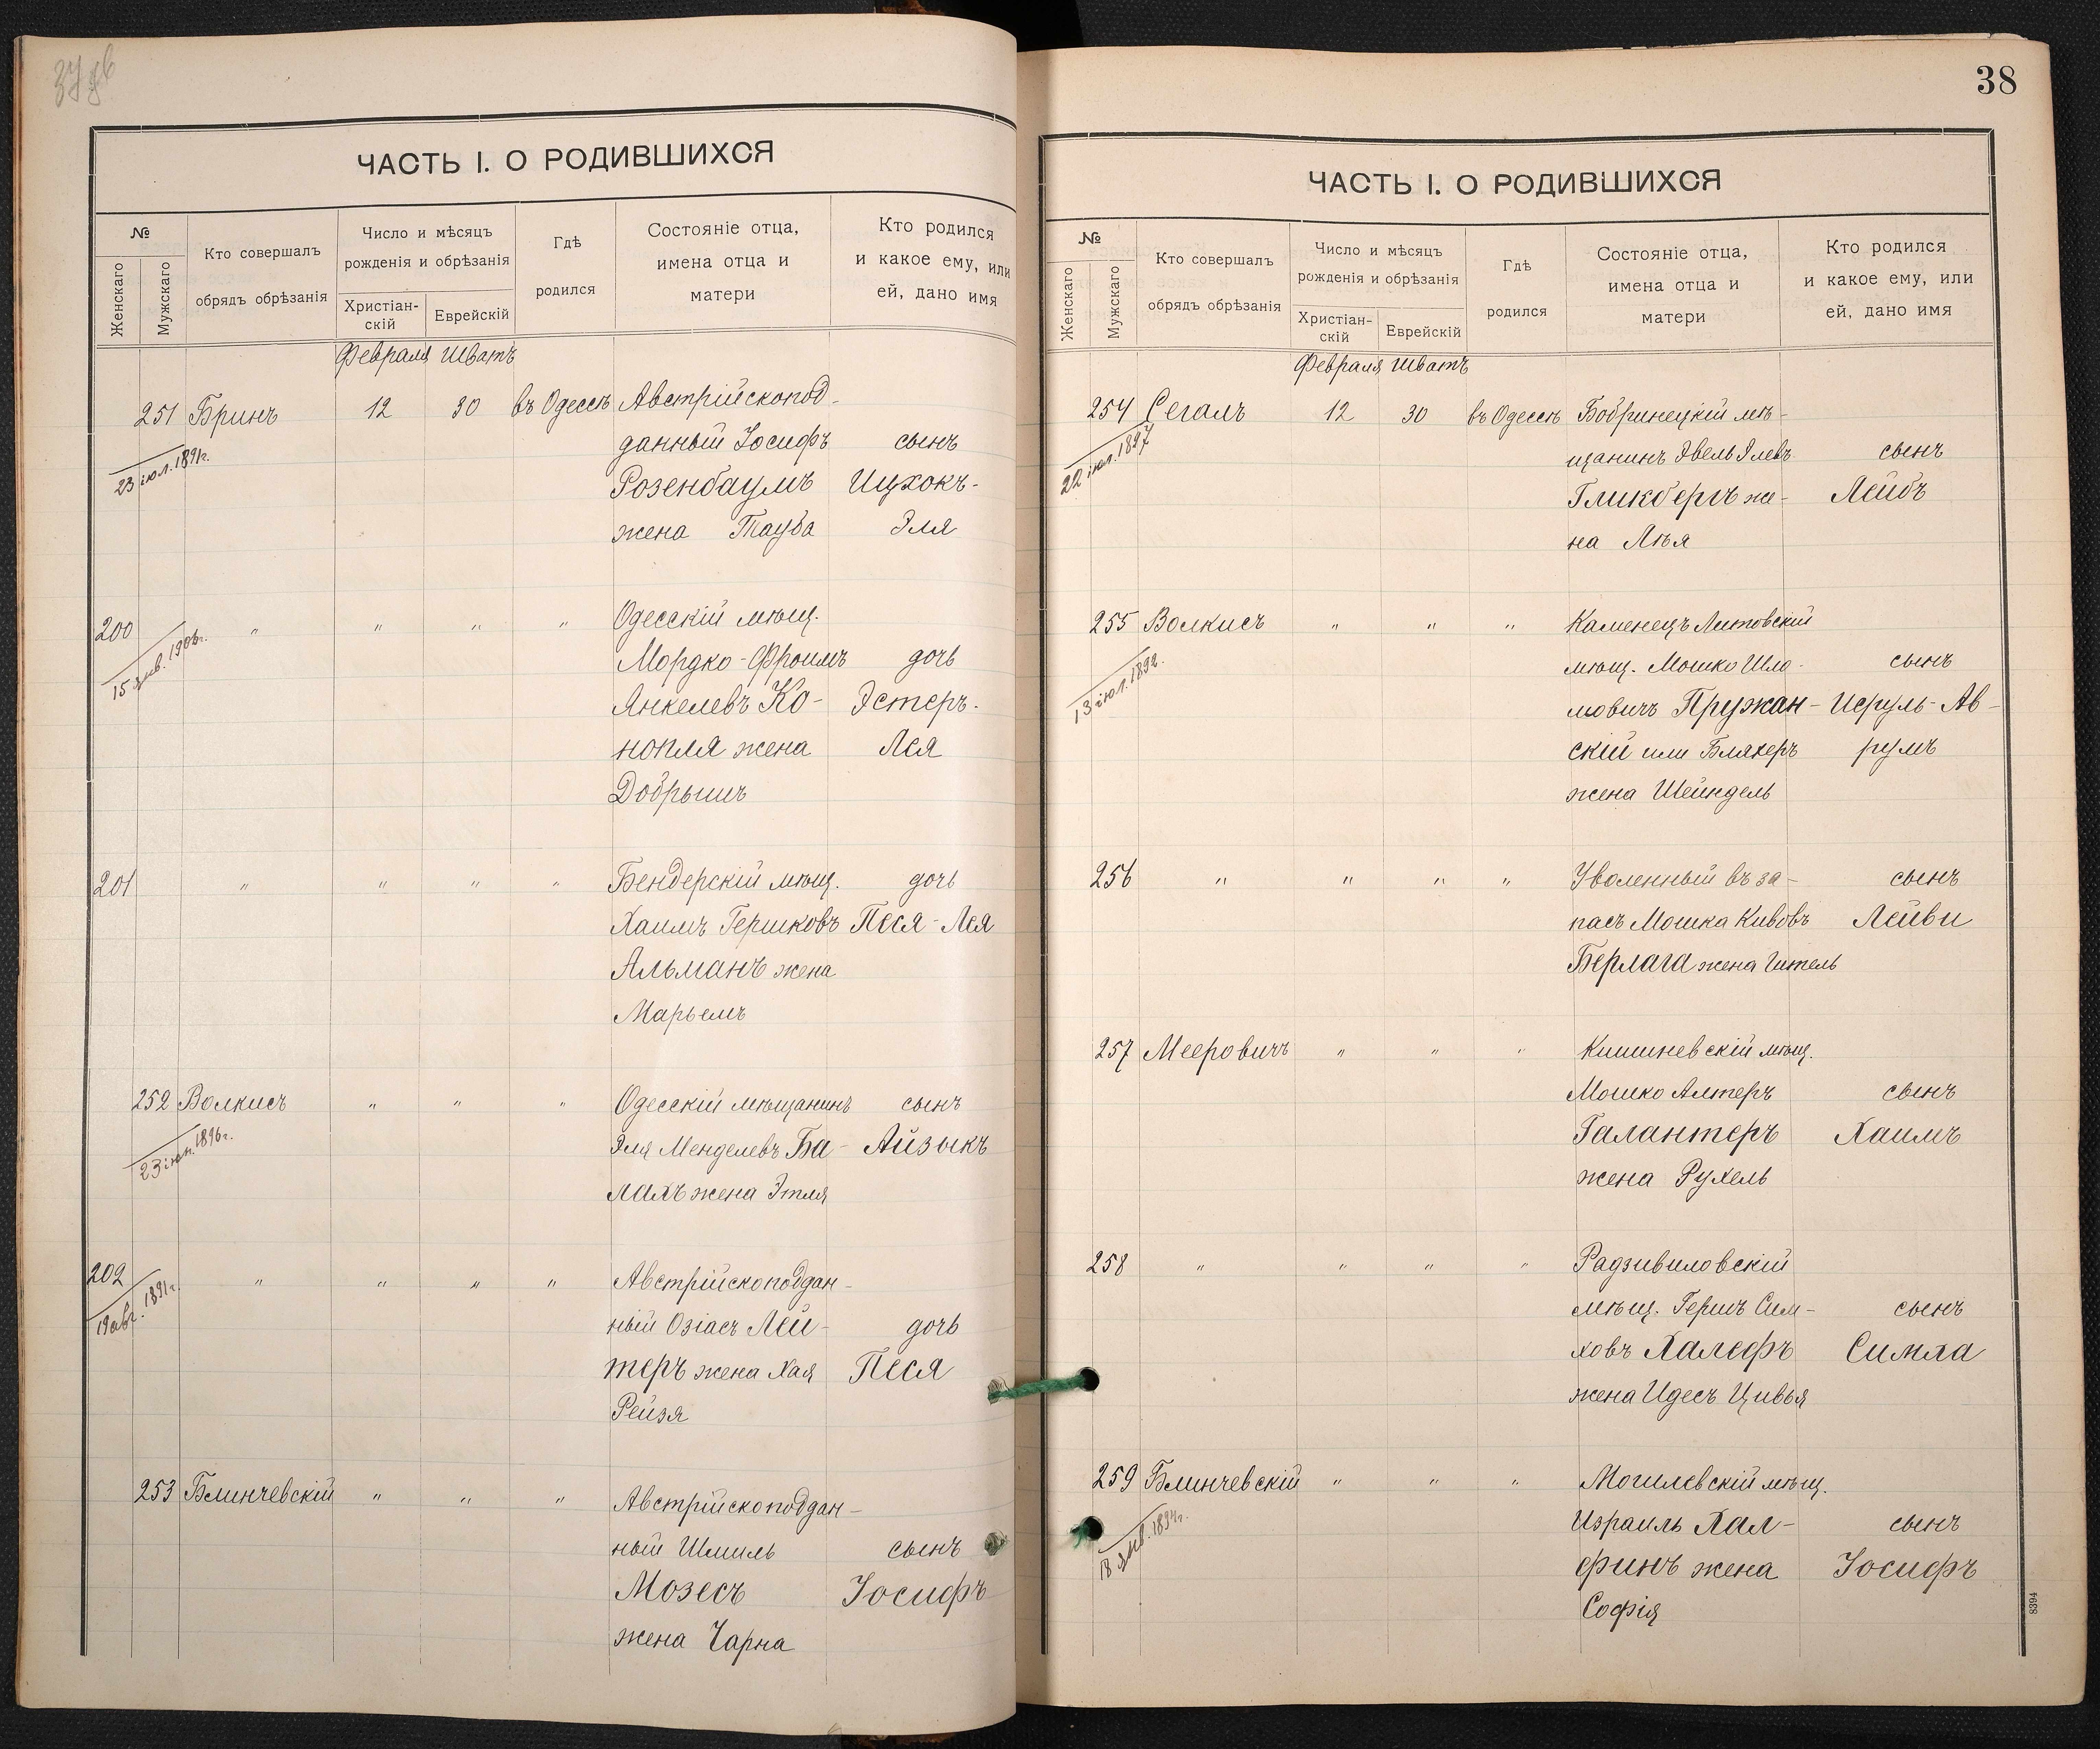 ЧАСТЬ I. О РОДИВШИХСЯ
№
Женскаго
Мужскаго
Кто совершалъ
обрядъ обрѣзанія
Число и мѣсяцъ
рожденія и обрѣзанія
Христіан-
скій
Еврейскій
Гдѣ
родился
Состояніе отца,
имена отца и
матери
Кто родился
и какое ему, или
ей, дано имя
Февраля Шватъ
251 Бринъ 12 30 въ Одессѣ Австрійскопод-
23 іюл. 1891г.
данный Іосифъ сынъ
Розенбаумъ Ицхокъ-
жена Тауба Эля
200 " " " " Одесскій мѣщ.
15 янв. 1906г.
Мордко-Фроимъ дочь
Янкелевъ Ко- Эстеръ-
нопля жена Лея
Добрышъ
201 " " " " Бендерскій мѣщ. дочь
Хаимъ Гершковъ Песя-Лея
Альманъ жена
Марьемъ
252 Волкисъ " " " Одесскій мѣщанинъ сынъ
23 іюн. 1896г.
Эля Менделевъ Ба- Айзыкъ
лахъ жена Этля
202 " " " " Австрійскоподдан-
19 авг. 1891г.
ный Озіасъ Лей- дочь
теръ жена Хая Песя
Рейзя
253 Блинчевскій " " " Австрійскоподдан-
ный Шмиль сынъ
Мозесъ Іосифъ
жена Чарна
38
ЧАСТЬ I. О РОДИВШИХСЯ
№
Женскаго
Мужскаго
Кто совершалъ
обрядъ обрѣзанія
Число и мѣсяцъ
рожденія и обрѣзанія
Христіан-
скій
Еврейскій
Гдѣ
родился
Состояніе отца,
имена отца и
матери
Кто родился
и какое ему, или
ей, дано имя
Февраля Шватъ
254 Сегалъ 12 30 въ Одессѣ Бобринецкій мѣ-
22 іюл. 1897
щанинъ Эвель Элевъ сынъ
Гликбергъ же- Лейбъ
на Лѣя
255 Волкисъ " " " Каменецъ Литовскій
13 іюл. 1892г.
мѣщ. Мошко Шло- сынъ
мовичъ Пружан- Исруль-Ав-
скій или Бляхеръ румъ
жена Шейндель
256 " " " " Уволенный въ за- сынъ
пасъ Мошка Кивовъ Лейви
Берлага жена Гитель
257 Мееровичъ " " " Кишиневскій мѣщ.
Мошко Алтеръ сынъ
Галантеръ Хаимъ
жена Рухель
258 " " " " Радзивиловскій
мѣщ. Гершъ Сим- сынъ
ховъ Халефъ Симха
жена Идесъ Цивья
259 Блинчевскій " " " Могилевскій мѣщ.
18 янв. 1894г.
Израиль Хал- сынъ
финъ жена Іосифъ
Софія
8394